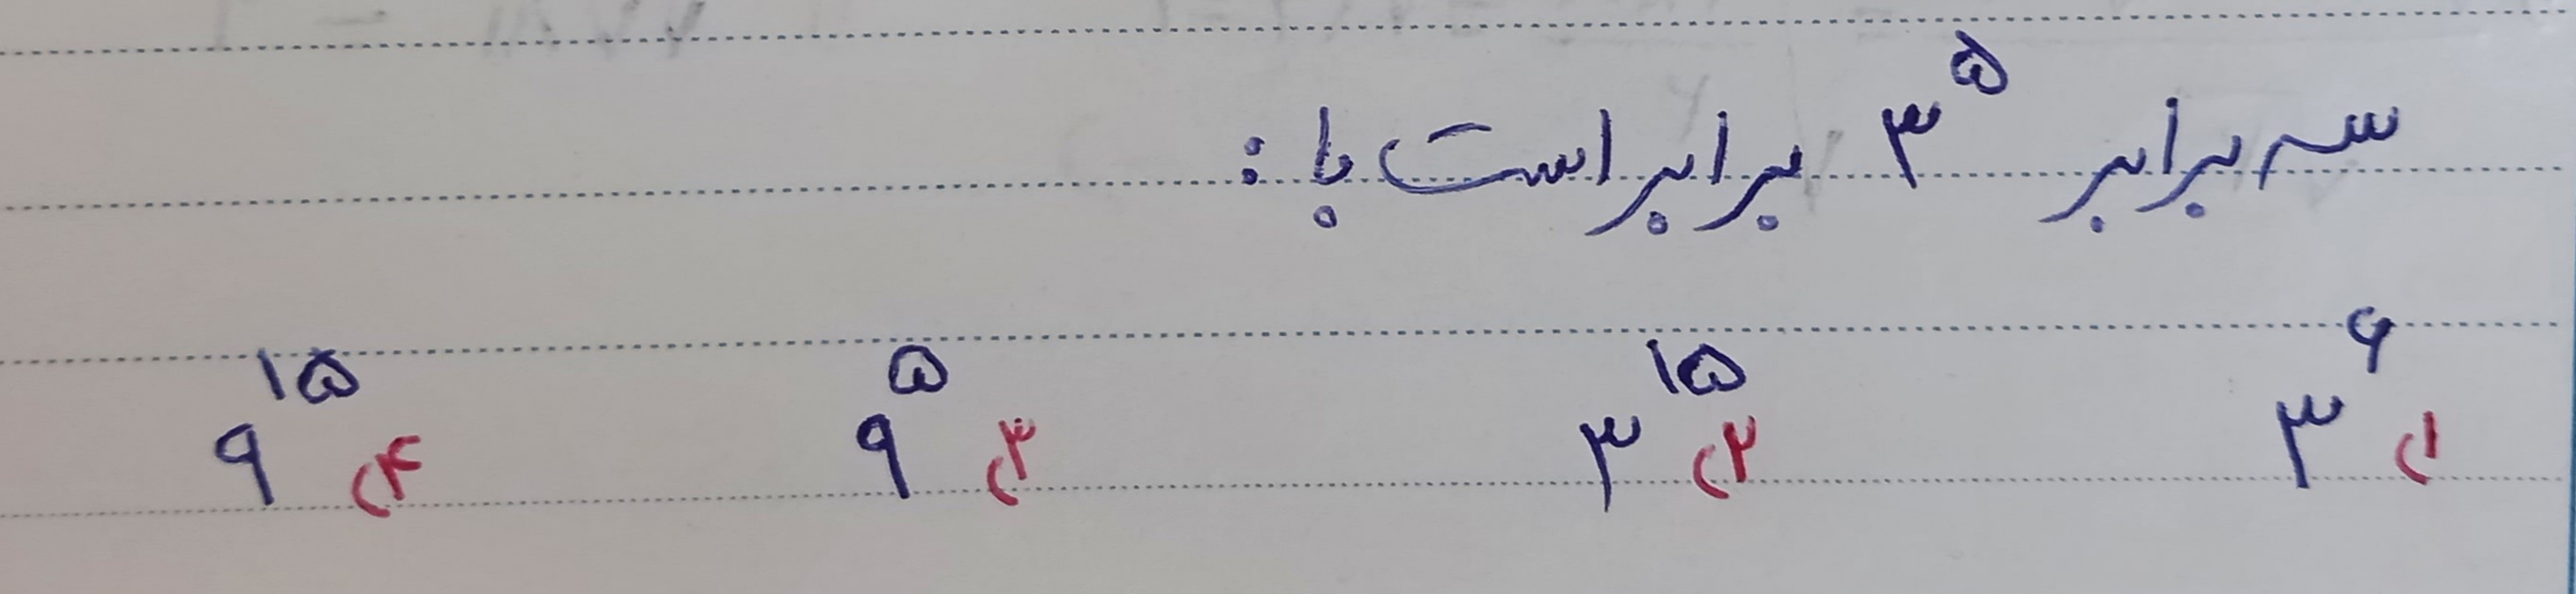 سه برابر ۳^۵ برابر است با :
۱) ۳^۶ ۲) ۳^۱۵ ۳) ۹^۵ ۴) ۹^۱۵